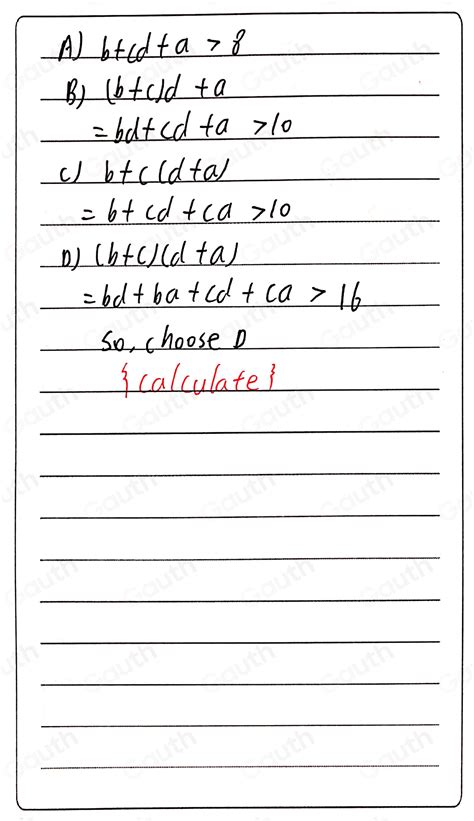 A) b+cd+a > 8
B) (b+c)d +a
= bd+cd +a >10
C) b+c(d+a)
= b+cd+ca >10
D) (b+c)(d+a)
=bd+ba+cd+ca > 16
So, choose D
{calculate}